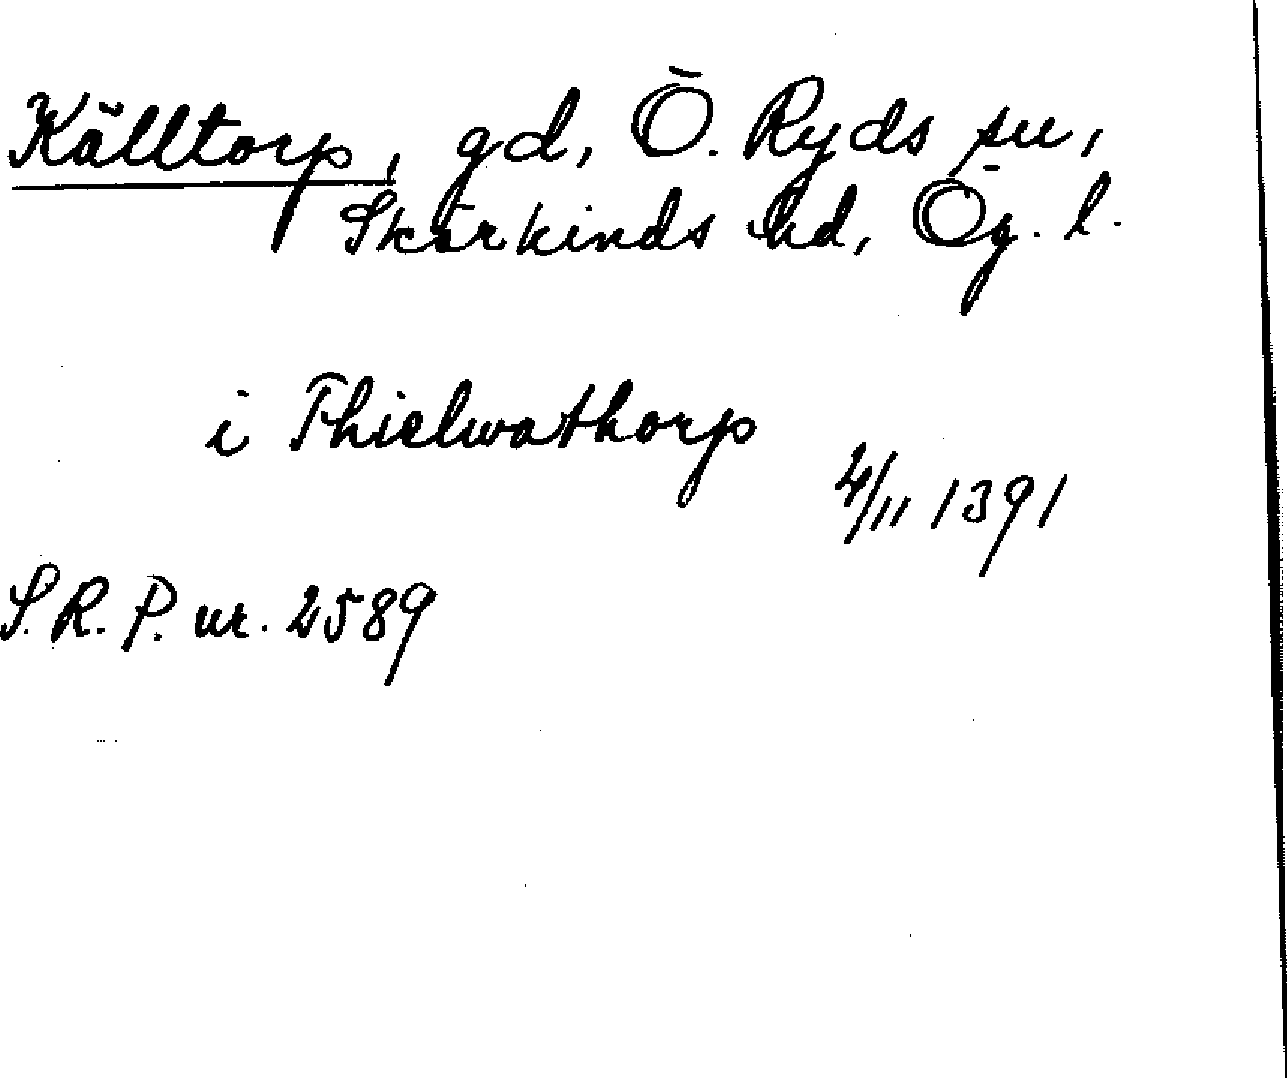 Källtorp, gd, Ö. Ryds sn,
Skärkinds hd, Ög. l.
i Thielwathorp
4/11 1391
S.R.P. nr. 2589